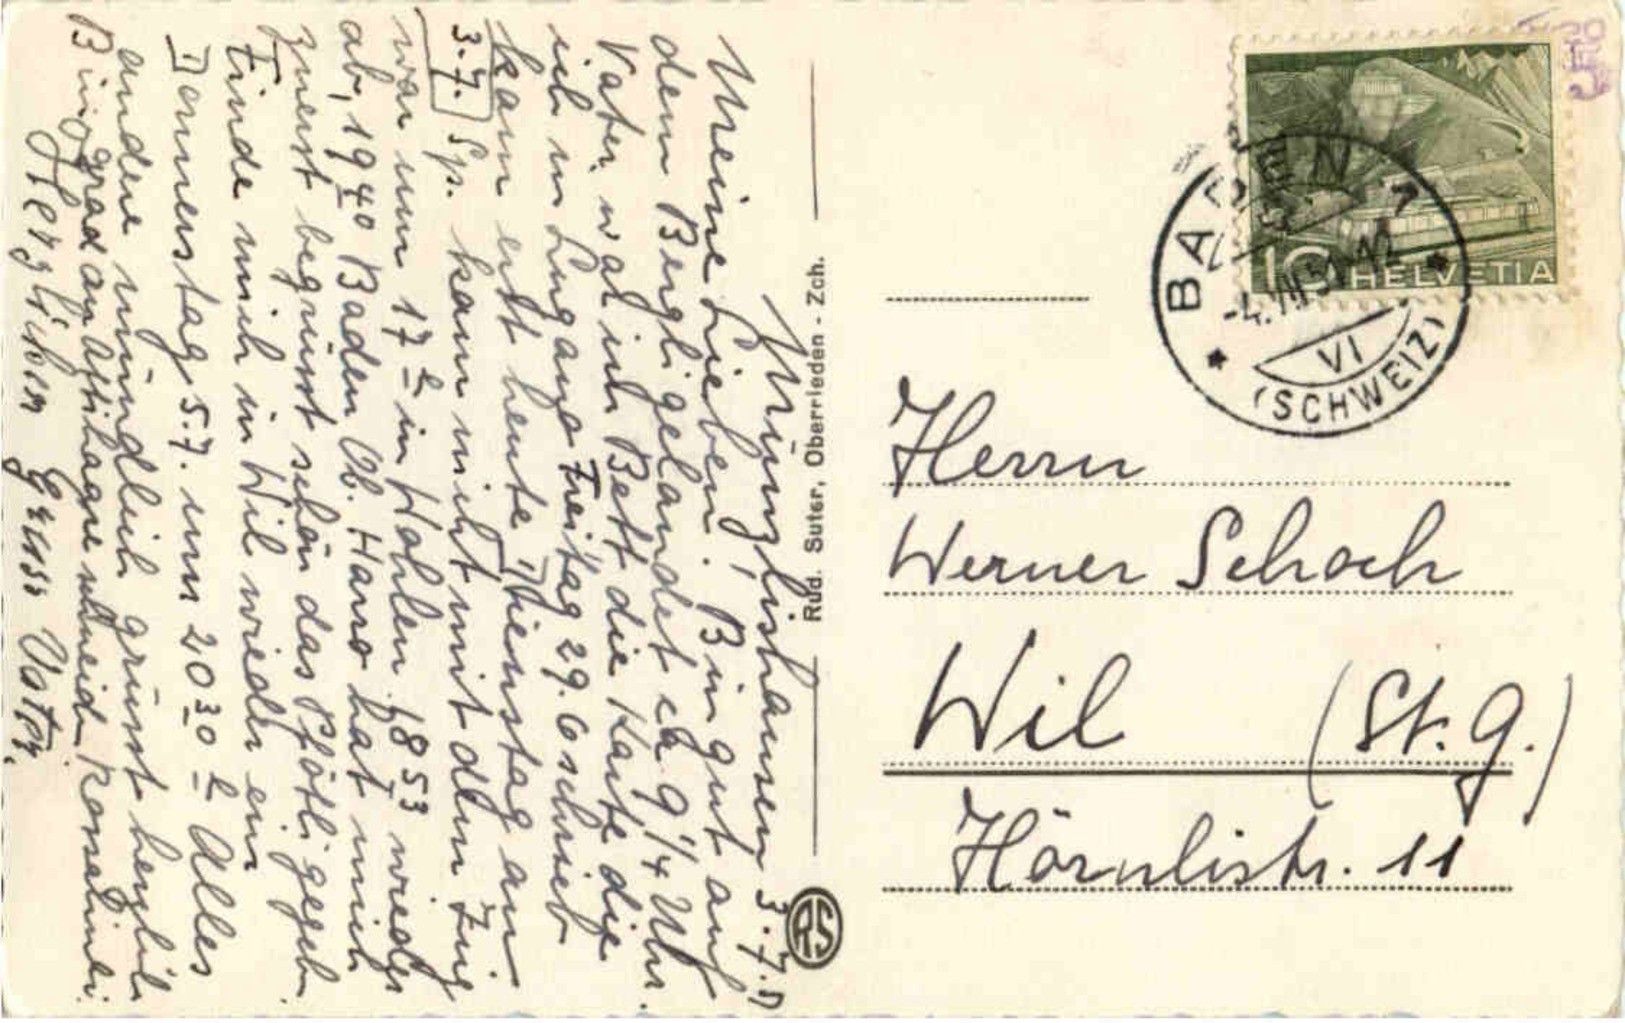 Münzlishausen 3.7.
Meine Lieben! Bin gut auf
dem Bergli gelandet ca 9 1/4 Uhr.
Vater: war ich Bett die Karte die
ich in Lugano Freitag 29.6 schrieb
kam erst heute Dienstag am
3.7. Sp. kam nicht mit dem Zug
war um 17 h in Wohlen 18 53 wieder
ab, 19 40 Baden Ob. Hanso hat mich
zuerst begrüsst schön das Pfötli gegeb.
Finde mich in Wil wieder ein
Donnerstag 5.7. um 20 30 h Alles
andere mündlich grüsst herzlich
Bin grad am schneide
Herzlichen Gruss Vater.
Rüd. Suter, Oberrieden - Zch.
RS
HELVETIA
10
BADEN 1
-4.VII.51.12
VI
(SCHWEIZ)
Herrn
Werner Schoch
Wil (St. G.)
Hörnlistr. 11